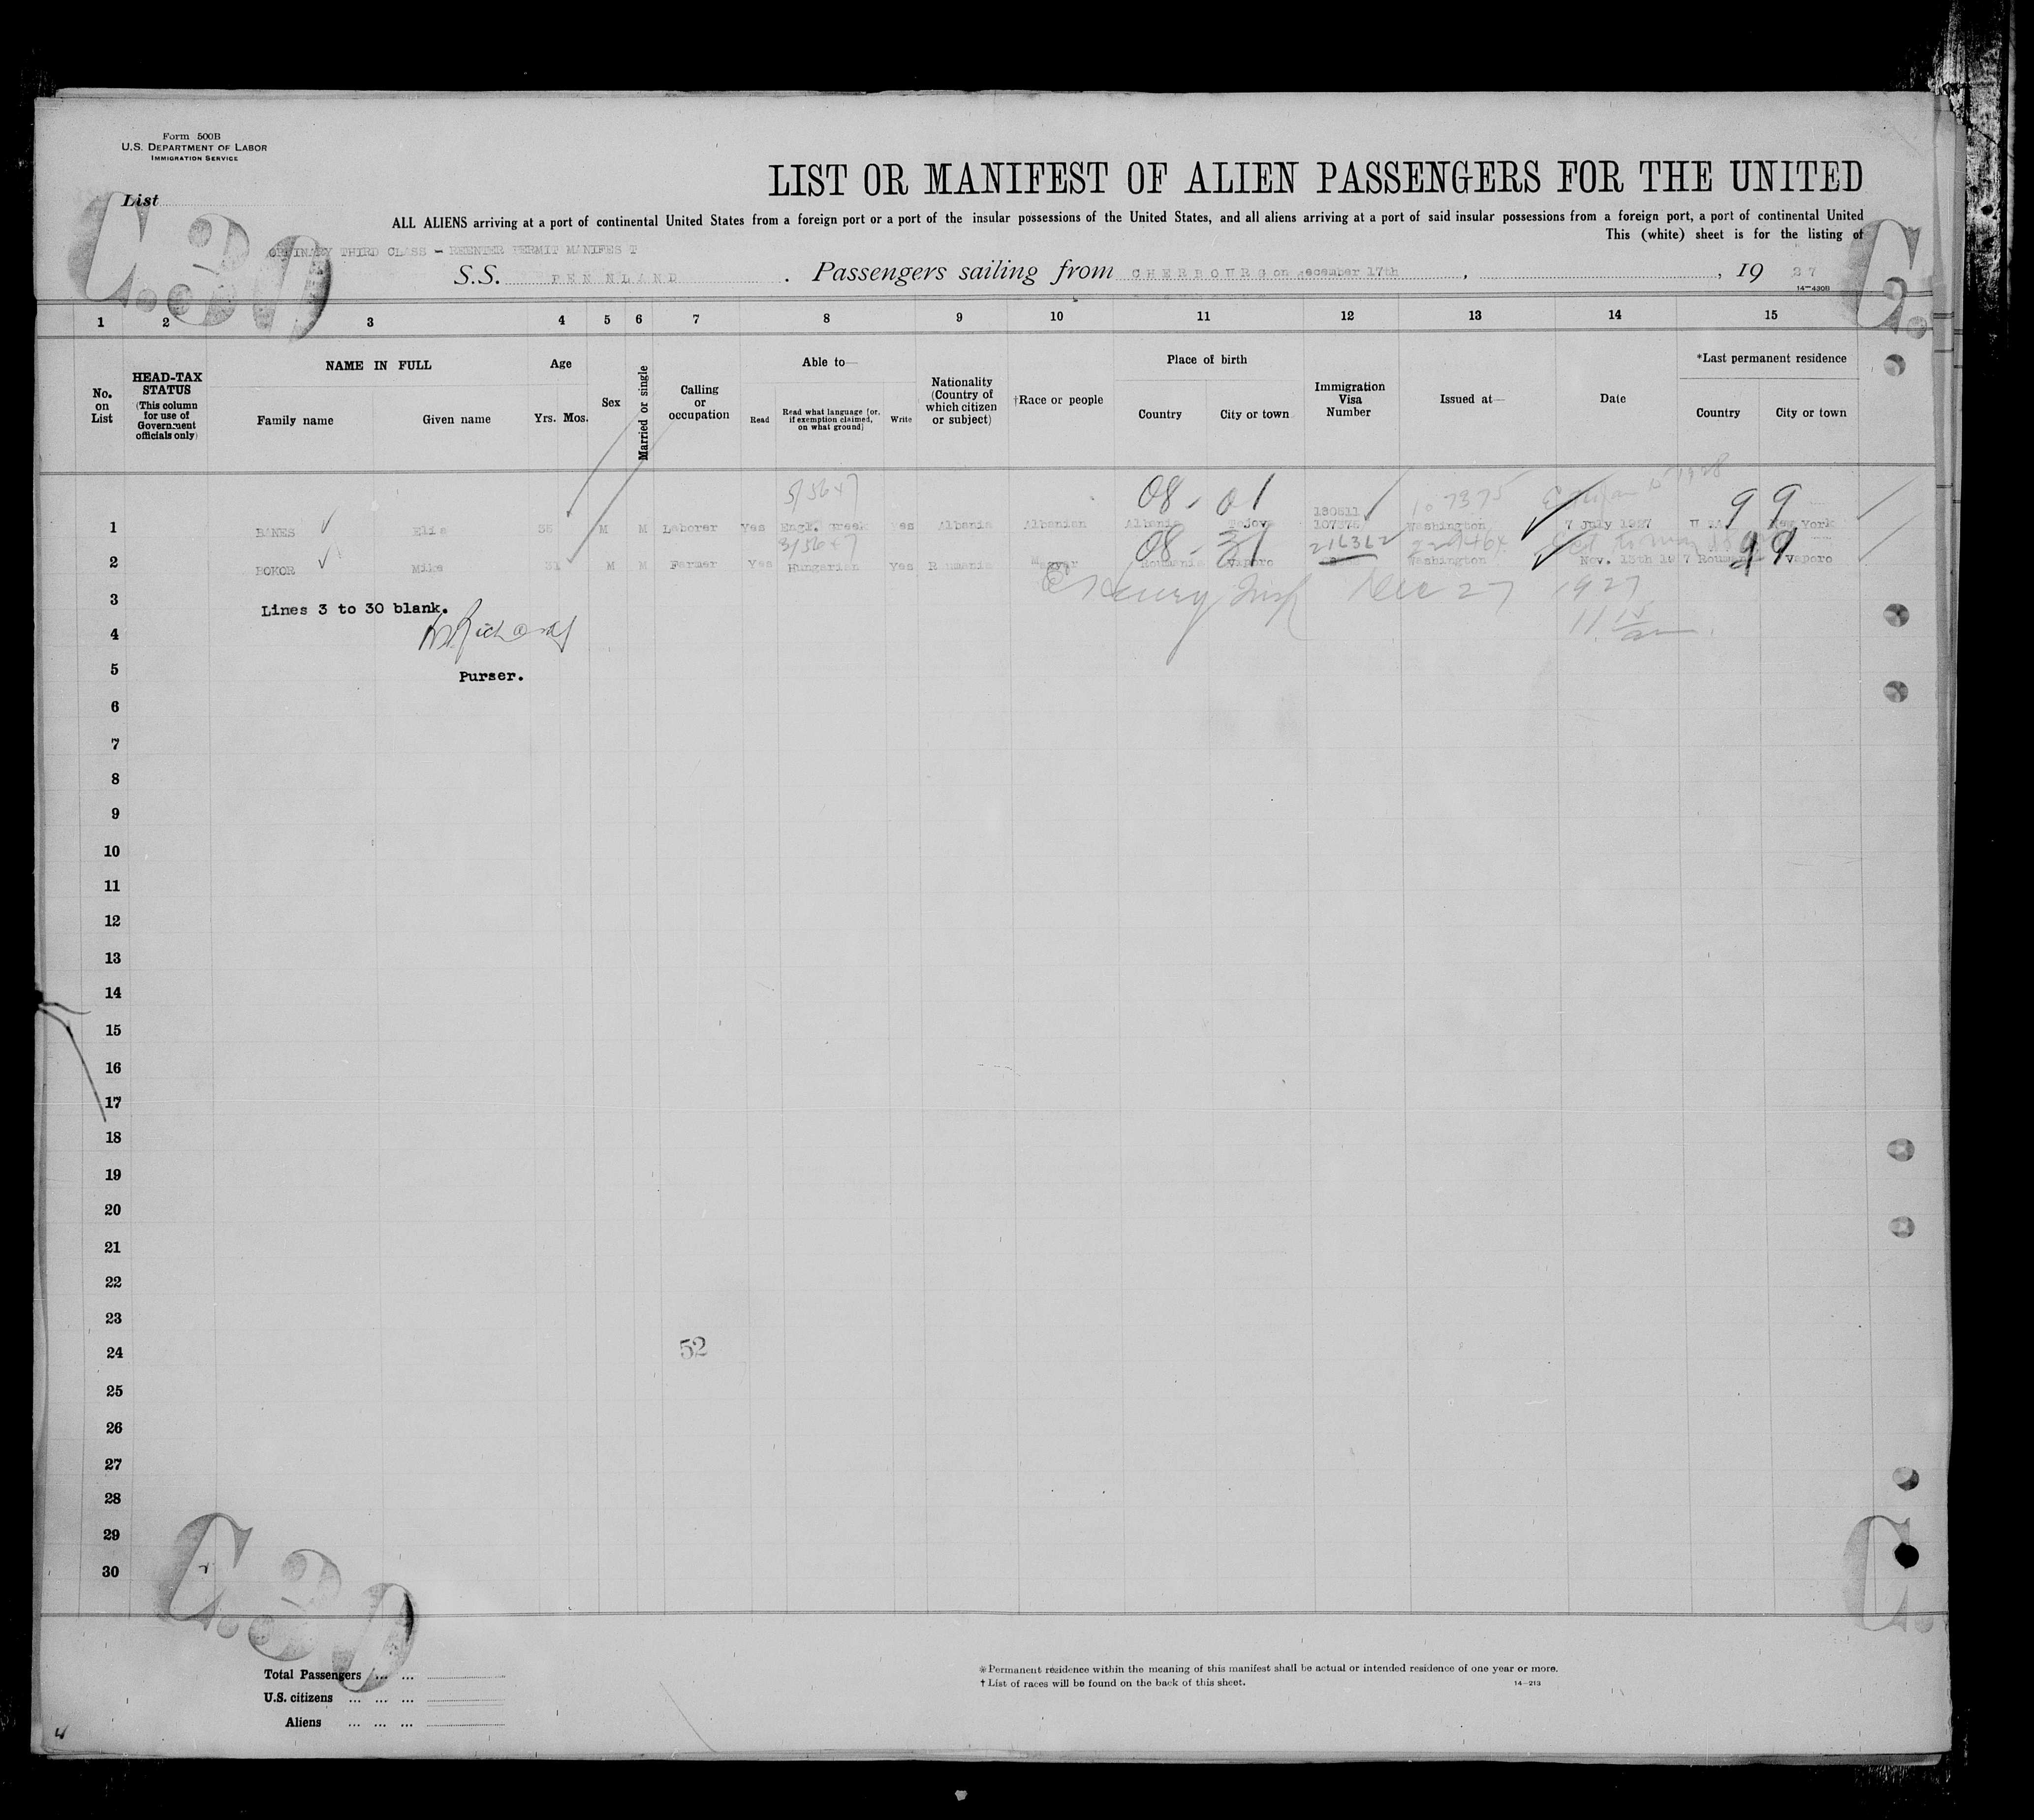 Form 500B
U.S. DEPARTMENT OF LABOR
IMMIGRATION SERVICE
List
LIST OR MANIFEST OF ALIEN PASSENGERS FOR THE UNITED
ALL ALIENS arriving at a port of continental United States from a foreign port or a port of the insular possessions of the United States, and all aliens arriving at a port of said insular possessions from a foreign port, a port of continental United
This (white) sheet is for the listing of
ORDINARY THIRD CLASS - REENTER PERMIT MANIFES T
S.S. PENNLAND . Passengers sailing from CHERBOURG on December 17th , , 19 27
14-430B
C. 30
C.
1 2 3 4 5 6 7 8 9 10 11 12 13 14 15
No. on List
HEAD-TAX STATUS (This column for use of Government officials only)
NAME IN FULL
Family name Given name
Age
Yrs. Mos.
Sex
Married or single
Calling or occupation
Able to—
Read
Read what language [or, if exemption claimed, on what ground]
Write
Nationality (Country of which citizen or subject)
†Race or people
Place of birth
Country City or town
Immigration Visa Number
Issued at—
Date
*Last permanent residence
Country City or town
5/5647 08 - 01 180811 107375 1928 99
1 BANES Elia M M Laborer Yes Engl. Greek Yes Albania Albanian Albania 107375 Washington 7 July 1927 New York
3/5647 08 - 31 216362 99
2 BOKOR Mike M M Farmer Yes Hungarian Yes Roumania Magyar Roumania Vaporo Washington Nov. 15th 1927 Roumania Vaporo
Henry Insp Dec 27 1927
3 Lines 3 to 30 blank.
11 15 am
4
5 Purser.
6
7
8
9
10
11
12
13
14
15
16
17
18
19
20
21
22
23
24 52
25
26
27
28
29
30
C. 30
C.
Total Passengers ... ...
U.S. citizens ... ... ...
Aliens ... ... ...
*Permanent residence within the meaning of this manifest shall be actual or intended residence of one year or more.
† List of races will be found on the back of this sheet.
14-213
4